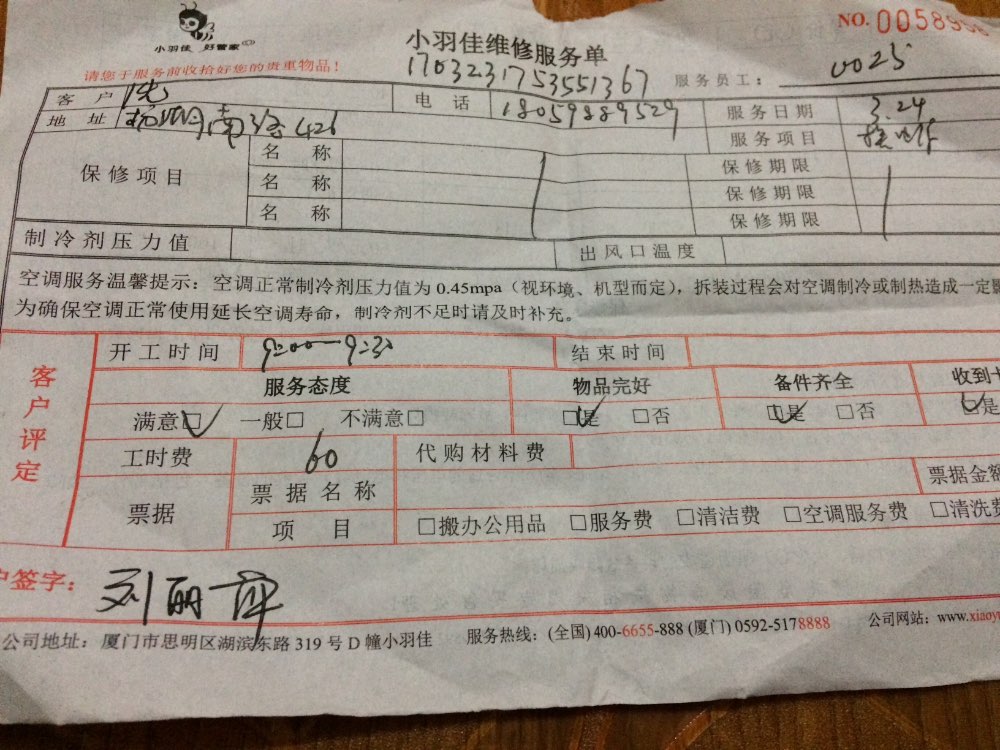 小羽佳 好管家
小羽佳维修服务单
NO.
请您于服务前收拾好您的贵重物品!
1703231753551367
服务员工: 0025
客户 电话 18059889529 服务日期 3.24
地址 南路426 服务项目
保修项目 名称 保修期限
名称 保修期限
名称 保修期限
制冷剂压力值 出风口温度
空调服务温馨提示:空调正常制冷剂压力值为0.45mpa(视环境、机型而定),拆装过程会对空调制冷或制热造成一定
为确保空调正常使用延长空调寿命,制冷剂不足时请及时补充。
客户评定
开工时间 9:00—9:30 结束时间
服务态度 物品完好 备件齐全 收到
满意□ 一般□ 不满意□ □是 □否 □是 □否 □是
工时费 60 代购材料费
票据 票据名称 票据金额
项目 □搬办公用品 □服务费 □清洁费 □空调服务费 □清洗费
户签字: 刘丽萍
公司地址:厦门市思明区湖滨东路319号D幢小羽佳 服务热线:(全国)400-6655-888 (厦门) 0592-5178888 公司网站:www.xiaoy